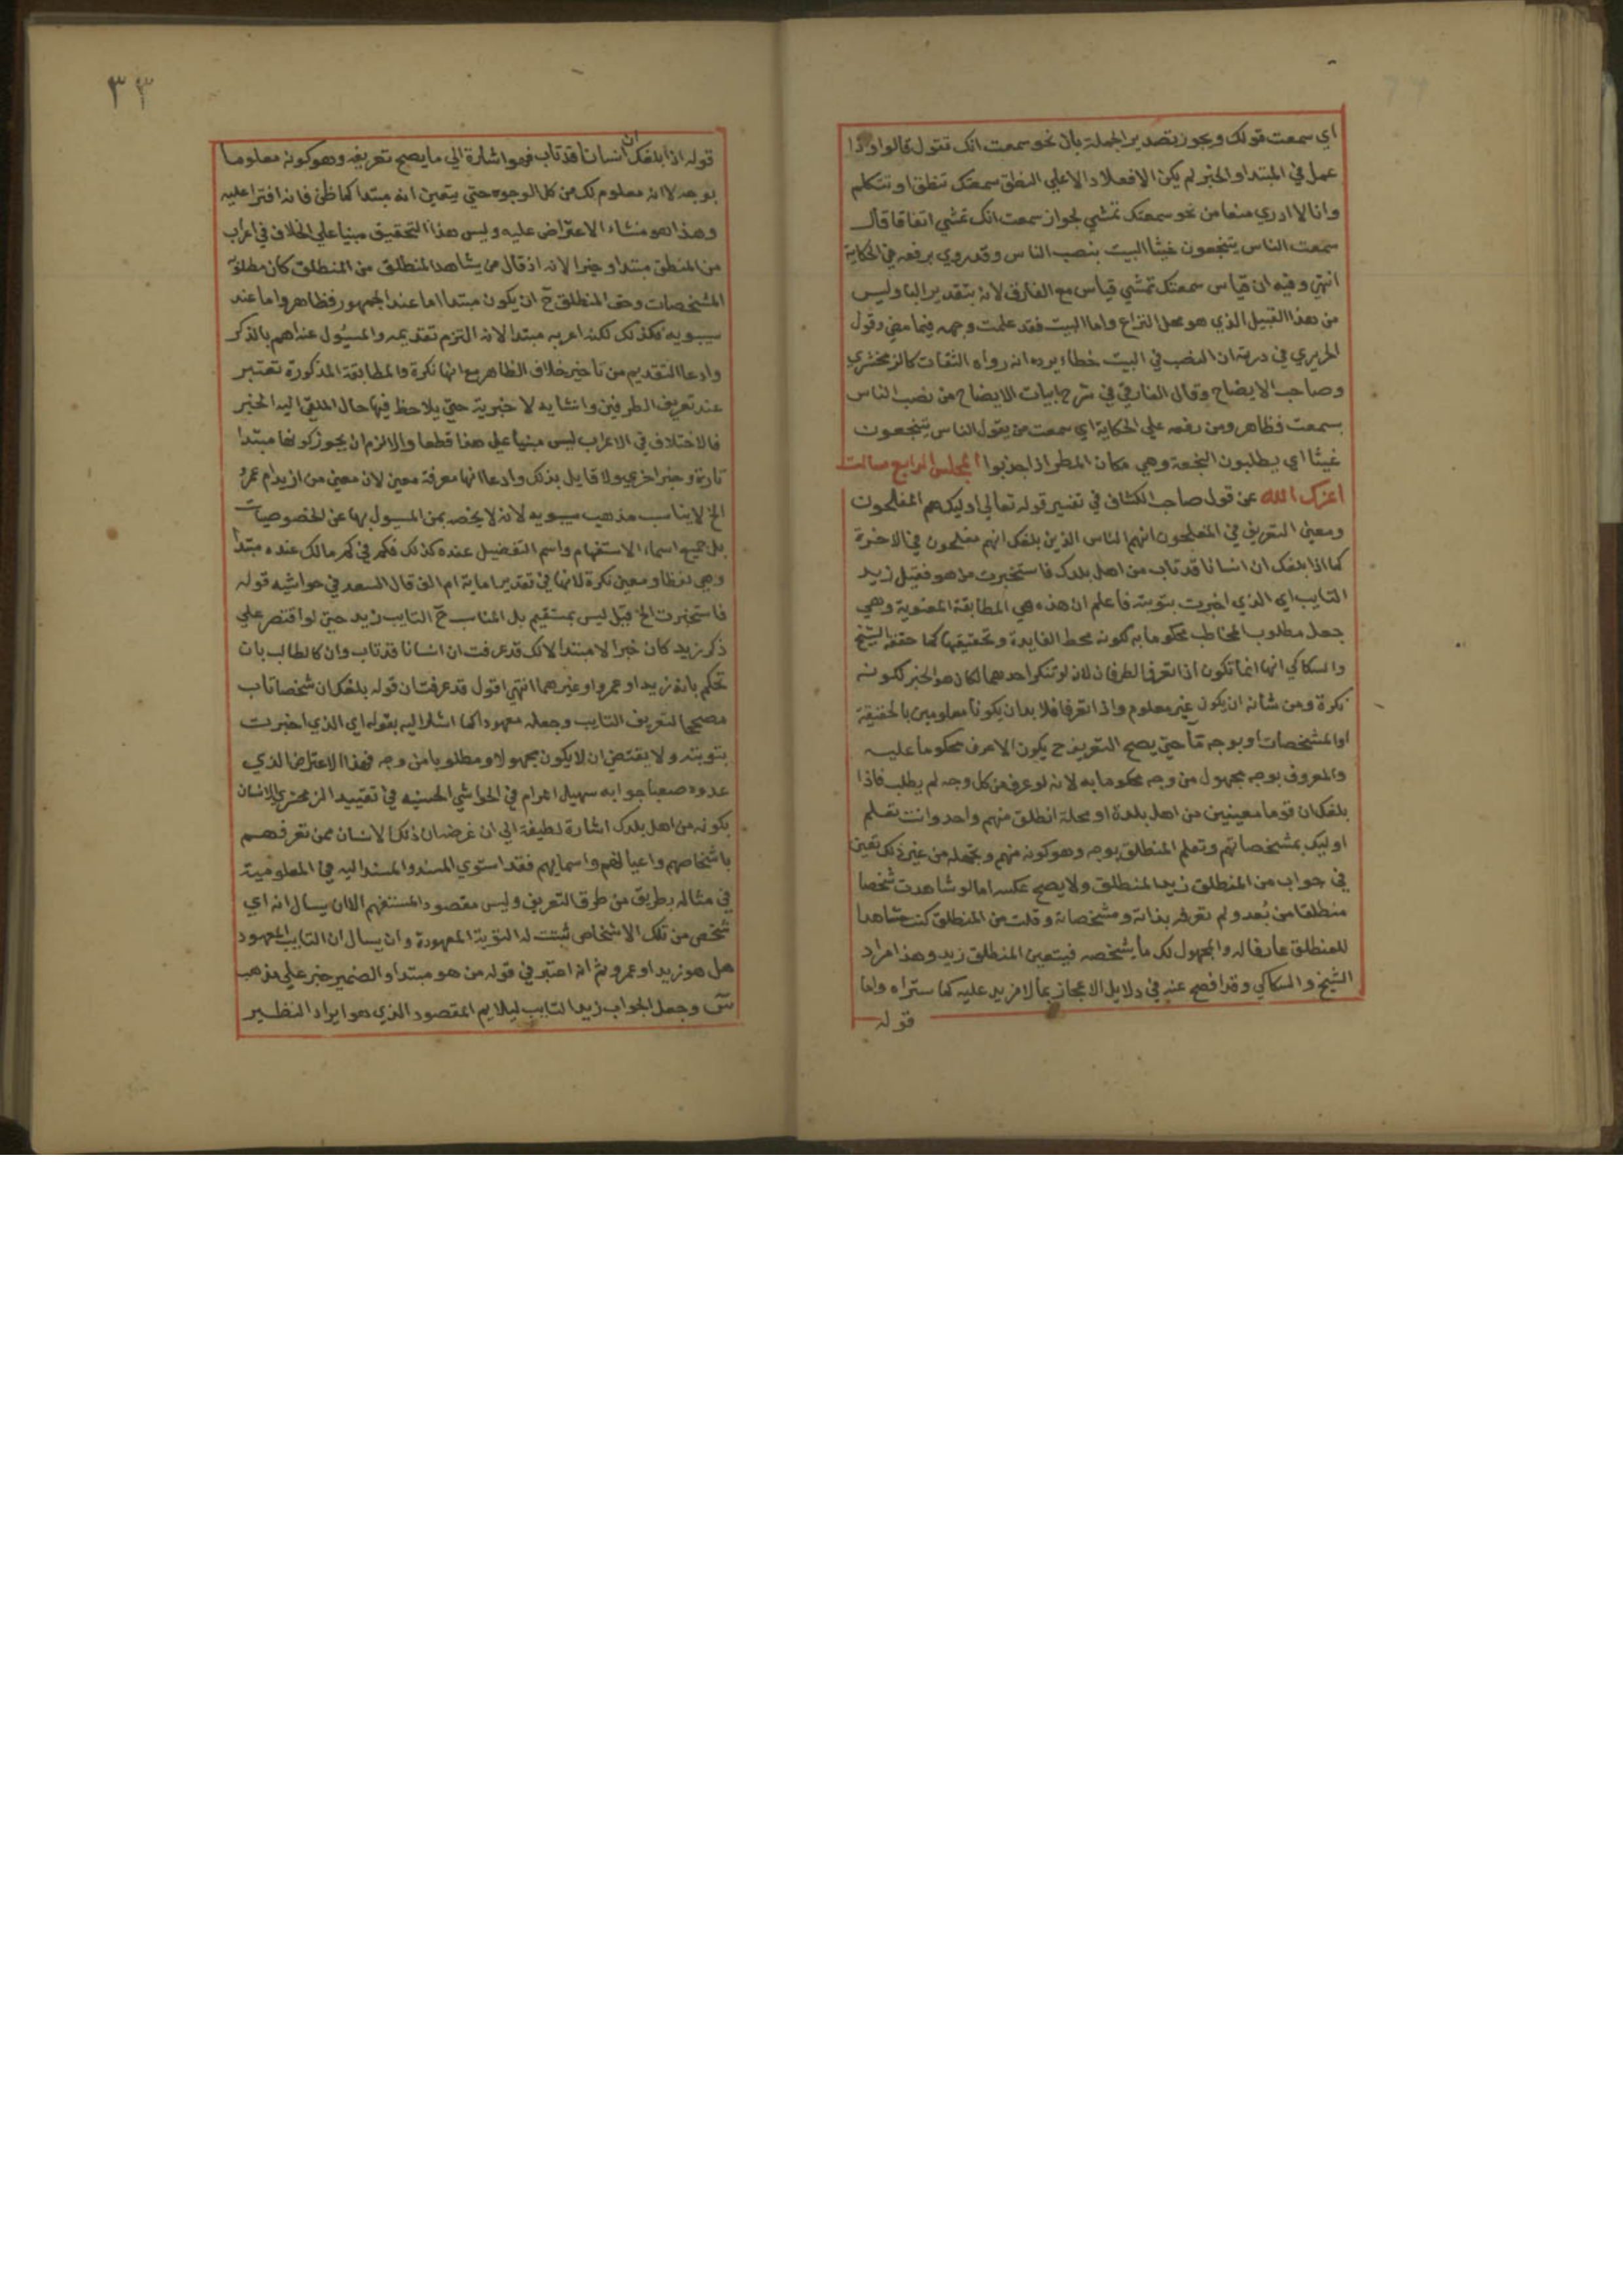 اي سمعت قولك ويجوز تصدير الجملة بان نحو سمعت انك تقول قالوا واذا
عمل في المبتدا والخبر لم يكن الا فعلا دالا علي النطق سمعتك تنطق او تتكلم
وانا لا ادري منعا من نحو سمعتك تمشي لجواز سمعت انك تمشي اتفاقا قال
سمعت الناس ينتجعون غيثا البيت بنصب الناس وقد روي برفعه في الحكاية
انتهي وفيه ان قياس سمعتك تمشي قياس مع الفارق لانه بتقدير البا وليس
من هذا القبيل الذي هو محل النزاع واما البيت فقد علمت وجهه فيما مضي وقول
الحريري في درته ان النصب في البيت خطاء يرده انه رواه الثقات كالزمخشري
وصاحب الايضاح وقال الفارقي في شرح ابيات الايضاح من نصب الناس
بسمعت فظاهر ومن رفعه علي الحكاية اي سمعت من يقول الناس ينتجعون
غيثا اي يطلبون النجعة وهي مكان المطر اذا اجدبوا المجلس الرابع سالت
اعزك الله عن قول صاحب الكشاف في تفسير قوله تعالي اوليك هم المفلحون
ومعني التعريف في المفلحون انهم الناس الذين بلغك انهم مفلحون في الاخرة
كما اذا بلغك ان انسانا قد تاب من اهل بلدك فاستخبرت من هو فقيل زيد
التايب اي الذي اخبرت بتوبته فاعلم ان هذه هي المطابقة المعنوية وهي
جعل مطلوب المخاطب محكوما به لكونه محط الفايدة وتحقيقها كما حققه الشيخ
والسكاكي انها انما تكون اذا تعرف الطرفان لانه لو تنكر احدهما لكان هو الخبر لكونه
نكرة ومن شأنه ان يكون غير معلوم واذا تعرفا فلا بد ان يكونا معلومين بالحقيقة
او المشخصات او بوجه ما حتي يصح التعريف ح يكون الاعرف محكوما عليه
والمعروف بوجه مجهول من وجه محكوما به لانه لو عرف من كل وجه لم يطلب فاذا
بلغك ان قوما معينين من اهل بلدة او محلة انطلق منهم واحد وانت تعلم
اوليك بمشخصاتهم وتعلم المنطلق بوجه وهو كونه منهم وتجهله من غير ذلك تعين
في جواب من المنطلق زيد المنطلق ولا يصح عكسه اما لو شاهدت شخصا
منطلقا من بُعد ولم تعرفه بذاته ومشخصاته وقلت من المنطلق كنت مشاهدا
للمنطلق عارفا له والمجهول لك ما يشخصه فيتعين المنطلق زيد وهذا مراد
الشيخ والسكاكي وقد افصح عنه في دلايل الاعجاز بما لا مزيد عليه كما ستراه واما
قوله
٣٣
قوله اذا بلغك ان انسانا قد تاب فهو اشارة الي ما يصح تعريفه وهو كونه معلوما
بوجه لا انه معلوم لك من كل الوجوه حتي يتعين انه مبتدا كما ظن فانه افترا عليه
وهذا هو منشاء الاعتراض عليه وليس هذا التحقيق مبنيا علي الخلاف في اعراب
من المنطق مبتدا وخبرا لانه اذ قال من يشاهد المنطلق من المنطلق كان مطلوبه
المشخصات وحق المنطلق ح ان يكون مبتدا اما عند الجمهور فظاهر واما عند
سيبويه فكذلك لكنه اعربه مبتدا لانه التزم تقديمه والمسيول عنه اهم بالذكر
وادعا التقديم من تاخير خلاف الظاهر مع انها نكرة والمطابقة المذكورة تعتبر
عند تعريف الطرفين وانشايه لا خبرية حتي يلاحظ فيها حال الملقي اليه الخبر
فالاختلاف في الاعراب ليس مبنيا علي هذا قطعا والا لزم ان يجوز كونها مبتدا
تارة وخبرا اخري ولا قايل بذلك وادعا انها معرفة معين لان معني من ازيد ام عمرو
الخ لا يناسب مذهب سيبويه لانه لا يخصه بمن المسيول بها عن الخصوصيات
بل جميع اسماء الاستفهام واسم التفضيل عنده كذلك فكم في كم مالك عنده مبتدا
وهي لفظا ومعني نكرة لانها في تقدير اماية ام الف قال السعد في حواشيه قوله
فاستخبرت الخ قيل ليس بمستقيم بل المناسب ح التايب زيد حتي لو اقتصر علي
ذكر زيد كان خبرا لا مبتدا لانك قد عرفت ان انسانا قد تاب وان كالطالب بان
تحكم بانه زيد او عمرو او غيرهما انتهي اقول قد عرفت ان قوله بلغك ان شخصا تاب
مصحح التعريف التايب وجعله معهودا كما اشار اليه بقوله اي الذي اخبرت
بتوبته ولا يقتضي ان لا يكون مجهولا ومطلوبا من وجه فهذا الاعتراض الذي
عدوه صعبا جوابه سهيل المرام في الحواشي الحسنيه في تقييد الزمخشري الانسان
بكونه من اهل بلدك اشارة لطيفة الي ان غرضه ان ذلك الانسان ممن تعرفهم
باشخاصهم واعيانهم واسمايهم فقد استوي المسند والمسند اليه في المعلومية
في مثاله بطريق من طرق التعريف وليس مقصود المستفهم الا ان يسال انه اي
شخص من تلك الاشخاص ثبتت له التوبة المعهودة وان يسال ان التايب المعهود
هل هو زيد او عمرو ثم انه اعتبر في قوله من هو مبتدا والضمير خبر علي مذهب
س وجعل الجواب زيد التايب ليلايم المقصود الذي هو ايراد النظير